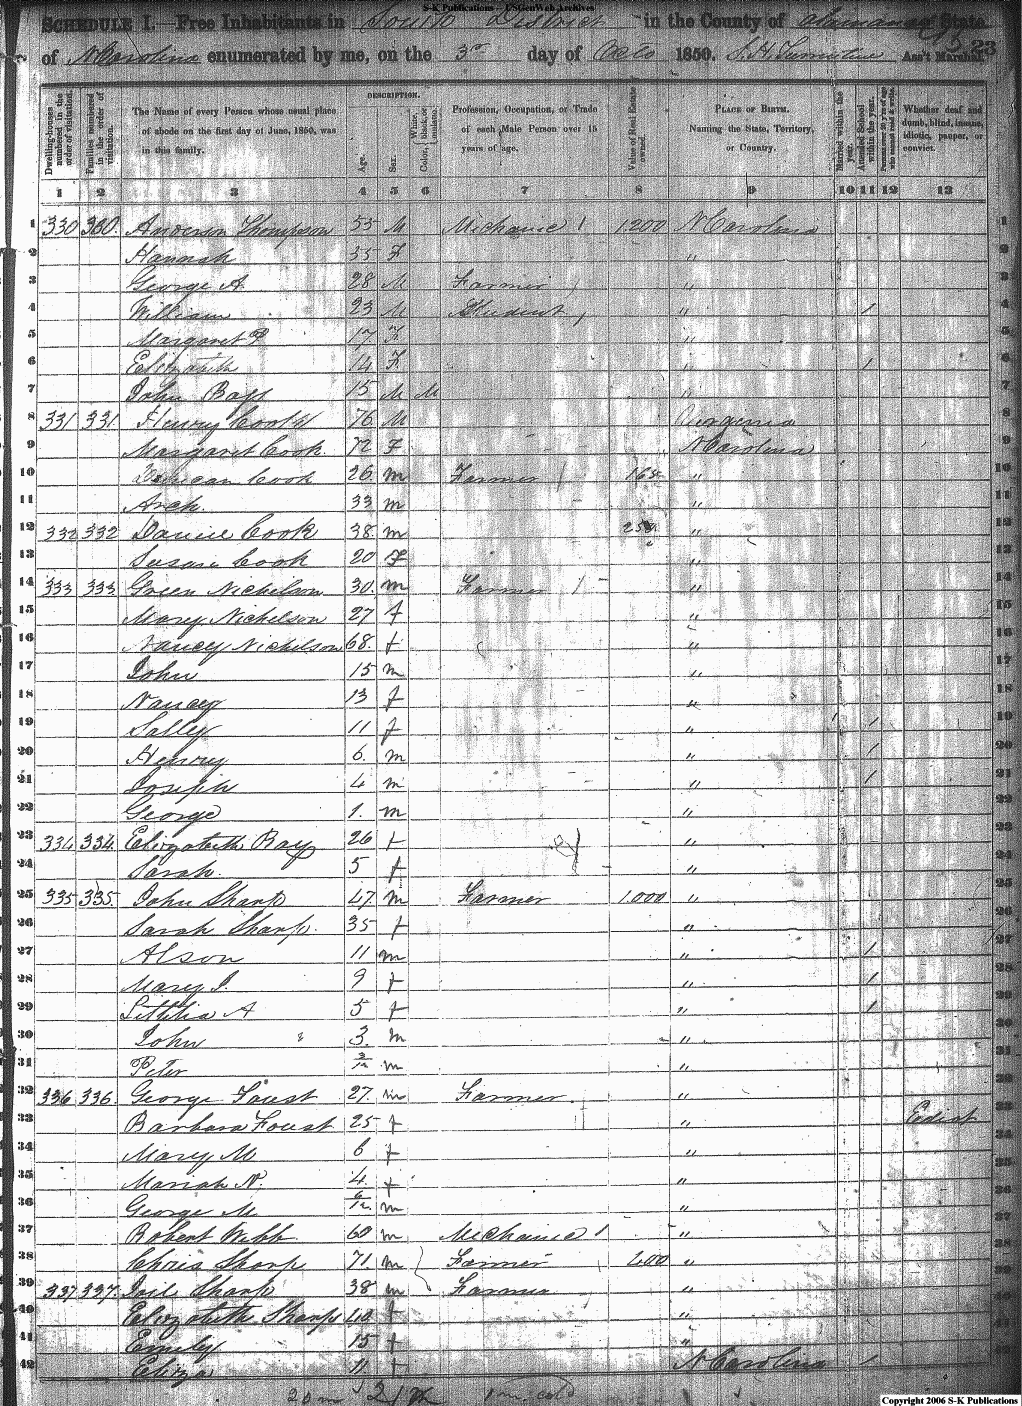 S-K Publications - USGenWeb Archives
SCHEDULE I.—Free Inhabitants in South District in the County of Alamance State
of N Carolina enumerated by me, on the 3rd day of Octo 1850. Ass't Marshal. 23
Dwelling-houses numbered in the order of visitation.
Families numbered in the order of visitation.
The Name of every Person whose usual place of abode on the first day of June, 1850, was in this family.
DESCRIPTION.
Age.
Sex.
Color, White, black, or mulatto.
Profession, Occupation, or Trade of each Male Person over 15 years of age.
Value of Real Estate owned.
PLACE OF BIRTH. Naming the State, Territory, or Country.
Married within the year.
Attended School within the year.
Persons over 20 y'rs of age who cannot read & write.
Whether deaf and dumb, blind, insane, idiotic, pauper, or convict.
1 2 3 4 5 6 7 8 9 10 11 12 13
1 330 330 Anderson Thompson 55 M Mechanic 1 1200 N Carolina 1
2 Hannah 55 F " 2
3 George A 28 M Farmer " 3
4 William 23 M Student " 1 4
5 Margaret 17 F " 5
6 Elizabeth 14 F " 1 6
7 John Bass 15 M M " 7
8 331 331 Henry Cook 76 M Virginia 8
9 Margaret Cook 72 F N Carolina 9
10 Duncan Cook 26 m Farmer 165 " 10
11 Arch. 33 m 11
12 332 332 Daniel Cook 38 m 250 " 12
13 Susan Cook 20 F " 13
14 333 333 Green Nichelson 30 m Farmer " 14
15 Mary Nichelson 27 f " 15
16 Nancy Nichelson 68 f " 16
17 John 15 m " 17
18 Nancy 13 f " 18
19 Sally 11 f " 1 19
20 Henry 6 m " 1 20
21 Joseph 4 m " 1 21
22 George 1 m " 22
23 334 334 Elizabeth Ray 26 f " 23
24 Sarah 5 f " 24
25 335 335 John Sharp 47 m Farmer 1000 " 25
26 Sarah Sharp 35 f " 26
27 Alson 11 m " 1 27
28 Mary J. 9 f " 1 28
29 Lithia A 5 f " 1 29
30 John 3 m " 30
31 Peter 3/12 m " 31
32 336 336 George Foust 27 m Farmer " 32
33 Barbara Foust 25 f " 33
34 Mary M 6 f " 34
35 Mariah N. 4 f " 35
36 George M 6/12 m " 36
37 Robert Webb 60 m Mechanic 1 " 37
38 Chris Sharp 71 m Farmer 200 " 38
39 337 337 Joil Sharp 38 m Farmer " 39
40 Elizabeth Sharp 40 f " 40
41 Emily 15 f " 41
42 Eliza 11 f N Carolina 1 42
20 m 21 1 m. cold
Copyright 2006 S-K Publications